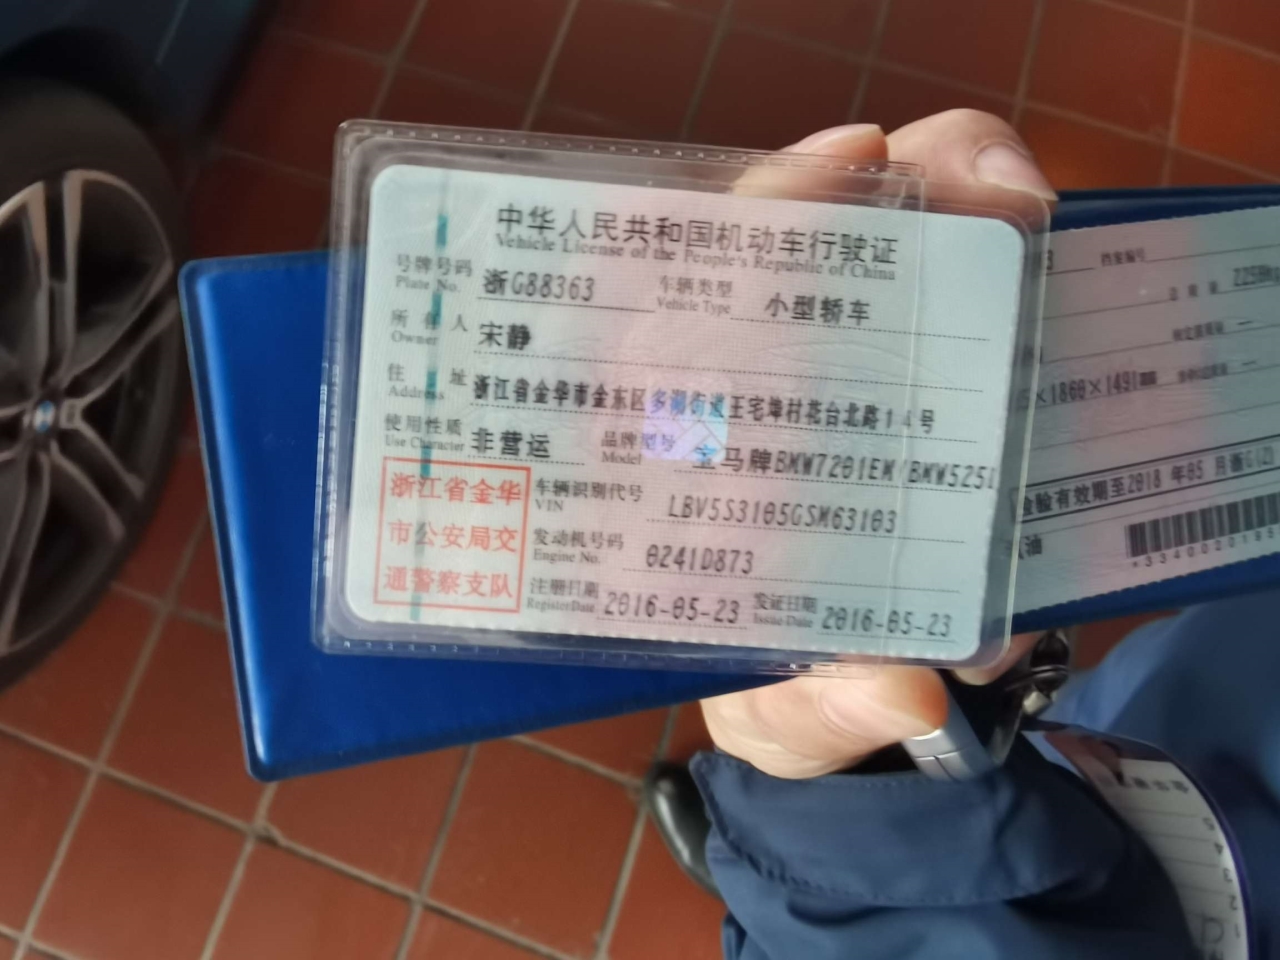 中华人民共和国机动车行驶证
Vehicle License of the People's Republic of China
号牌号码 浙G88363 车辆类型 小型轿车
Plate No. Vehicle Type
所有人 宋静
Owner
住址 浙江省金华市金东区多湖街道王宅埠村花台北路14号
Address
使用性质 非营运 品牌型号 宝马牌BMW7201EM(BMW525L
Use Character Model
浙江省金华
市公安局交
通警察支队
车辆识别代号 LBV5S3105GSM63103
VIN
发动机号码 0241D873
Engine No.
注册日期 2016-05-23 发证日期 2016-05-23
Register Date Issue Date
3 档案编号
×1860×1491mm
检验有效期至2018年05月浙G(2)
油